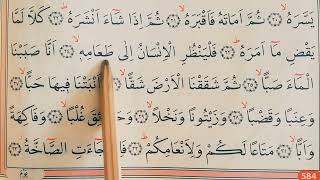 يَسَّرَهُ ۙ ﴿٢٠﴾ ثُمَّ اَمَاتَهُ فَاَقْبَرَهُ ۙ ﴿٢١﴾ ثُمَّ اِذَا شَٓاءَ اَنْشَرَهُ ۜ ﴿٢٢﴾ كَلَّا لَمَّا
يَقْضِ مَٓا اَمَرَهُ ۜ ﴿٢٣﴾ فَلْيَنْظُرِ الْاِنْسَانُ اِلٰى طَعَامِهٖ ۙ ﴿٢٤﴾ اَنَّا صَبَبْنَا
الْمَٓاءَ صَبًّا ۙ ﴿٢٥﴾ ثُمَّ شَقَقْنَا الْاَرْضَ شَقًّا ۙ ﴿٢٦﴾ فَاَنْبَتْنَا فٖيهَا حَبًّا ۙ ﴿٢٧﴾
وَعِنَبًا وَقَضْبًا ۙ ﴿٢٨﴾ وَزَيْتُونًا وَنَخْلًا ۙ ﴿٢٩﴾ وَحَدَٓائِقَ غُلْبًا ۙ ﴿٣٠﴾ وَفَاكِهَةً
وَاَبًّا ۙ ﴿٣١﴾ مَتَاعًا لَكُمْ وَلِاَنْعَامِكُمْ ۜ ﴿٣٢﴾ فَاِذَا جَٓاءَتِ الصَّٓاخَّةُ ۘ ﴿٣٣﴾
584